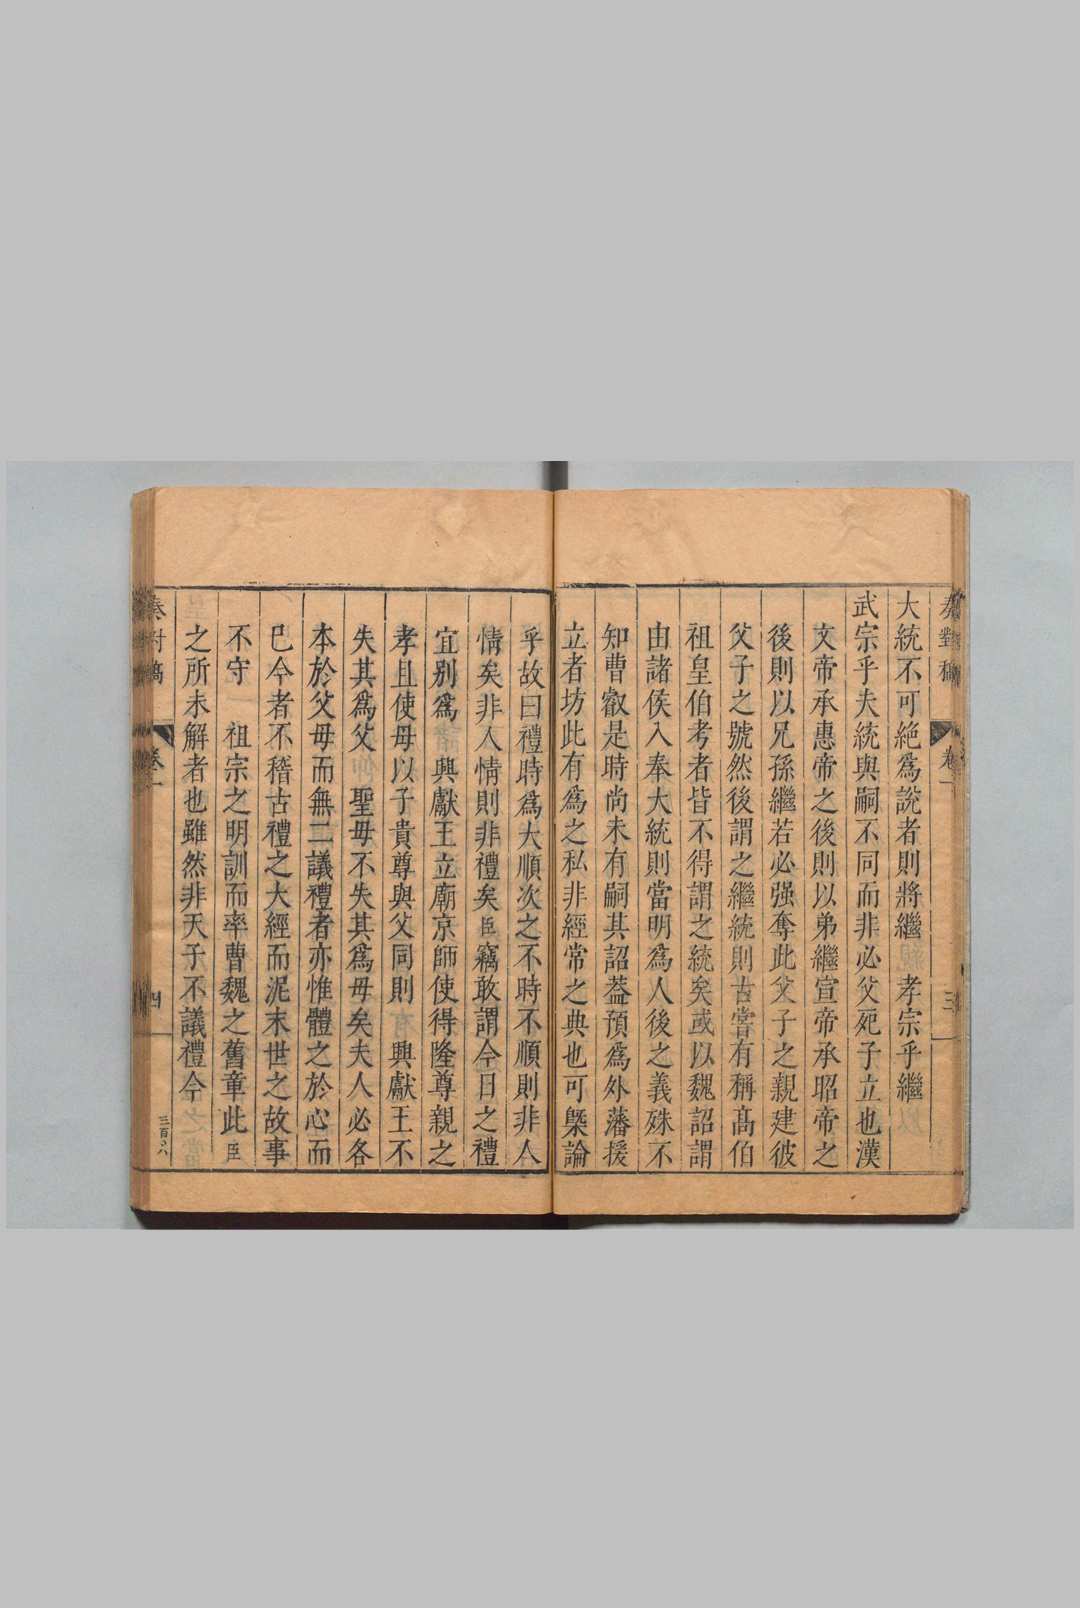 奏對稿
卷一
三
大統不可絶爲說者則將繼　孝宗乎繼
武宗乎夫統與嗣不同而非必父死子立也漢
文帝承惠帝之後則以弟繼宣帝承昭帝之
後則以兄孫繼若必强奪此父子之親建彼
父子之號然後謂之繼統則古嘗有稱髙伯
祖皇伯考者皆不得謂之統矣或以魏詔謂
由諸侯入奉大統則當明爲人後之義殊不
知曹叡是時尚未有嗣其詔葢預爲外藩援
立者坊此有爲之私非經常之典也可槩論
乎故曰禮時爲大順次之不時不順則非人
情矣非人情則非禮矣臣竊敢謂今日之禮
宜别爲　興獻王立廟京師使得隆尊親之
孝且使母以子貴尊與父同則　興獻王不
失其爲父　聖母不失其爲母矣夫人必各
本於父母而無二議禮者亦惟體之於心而
已今者不稽古禮之大經而泥末世之故事
不守　祖宗之明訓而率曹魏之舊章此臣
之所未解者也雖然非天子不議禮今
奏對稿
卷一
四
三百六